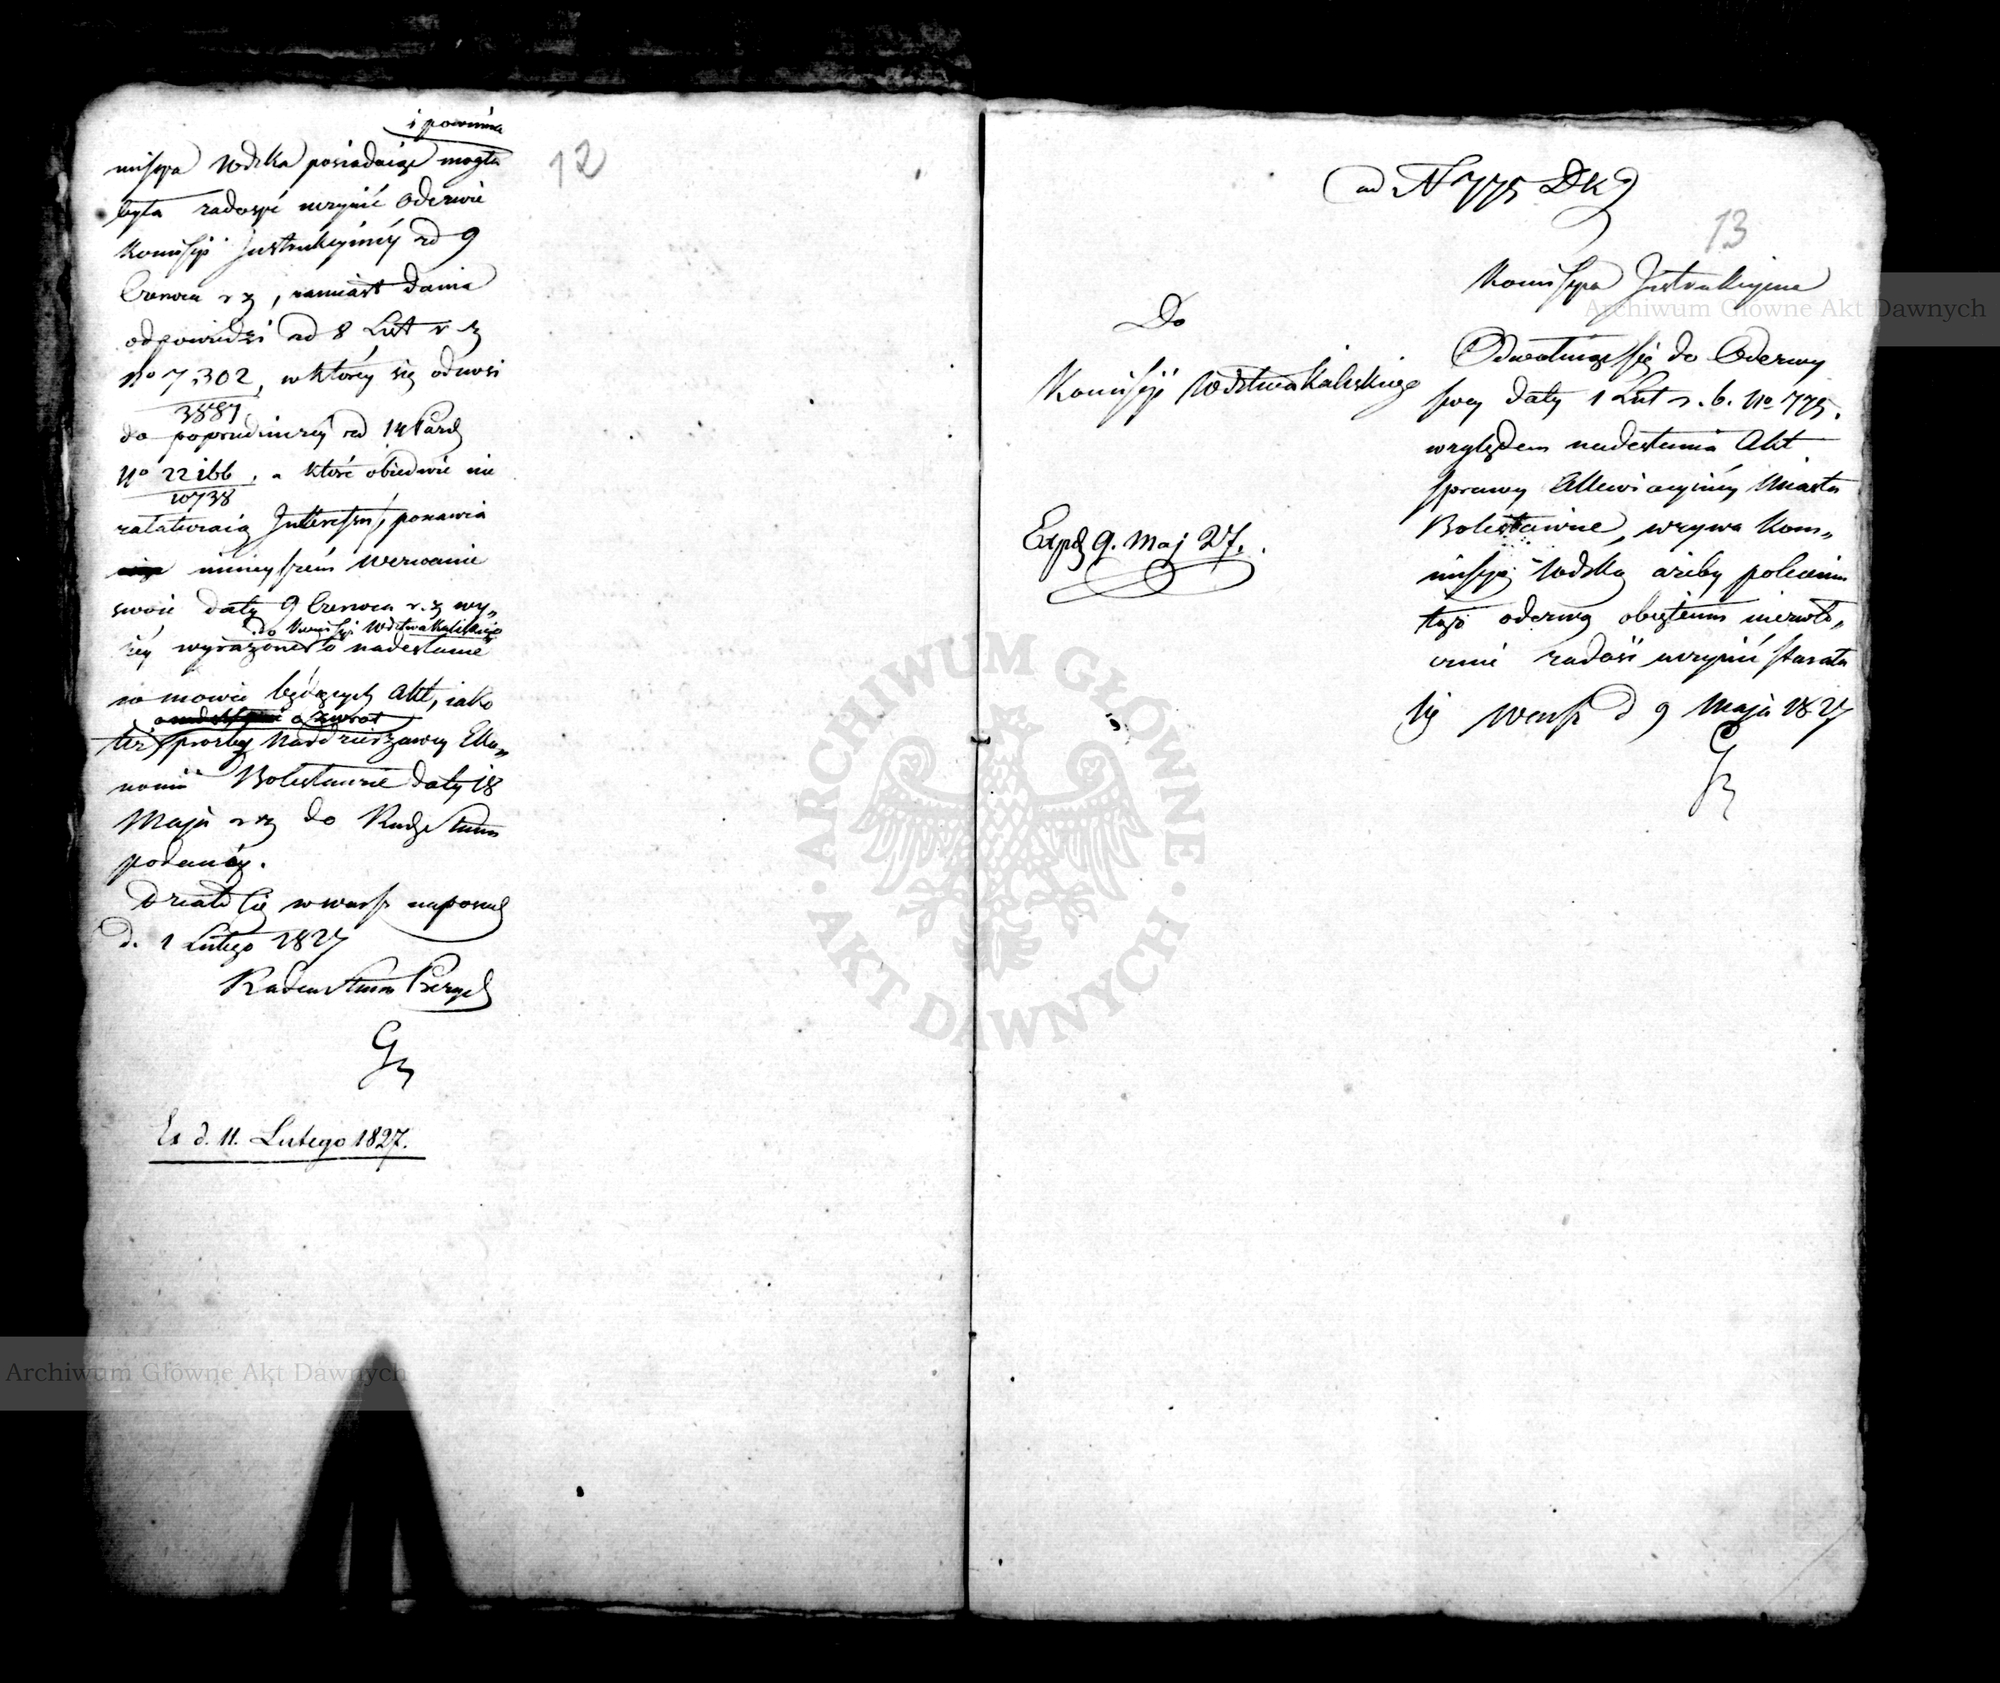 i powinna
missya Wdzka posiadaiąc mogła
była zadosyć uczynić Odezwie
Kommissyi Instrukcyiney od 9
Czerwca r z, zamiast dania
odpowiedzi od 8 Lut r z
No 7,302, w którey się odnosi
3881
do poprzedniczey od 14 Paźd
No 22166, a które obiedwie nie
10738
załatwiaią Interessu, ponawia
ninieyszém wezwanie
swoie daty 9 Czerwca r. z wy„
do Kommissyi Wdztwa Kaliskiego
żéy wyrażone o nadesłanie
w mowie będących Akt, iako
o zwrot
też prożby Naddzierżawcy Eko„
nomii Bolesławiec daty 18
Maja r z do Rady Stanu
podanéy.
Działo się w Warsz na posied
d. 1 Lutego 1827
Radca Stanu Prezyd
Ex d. 11. Lutego 1827.
12
ad N 775 DK
13
Do
Kommissyi Wdztwa Kaliskiego
Exp d 9. Maj 27.
Kommissya Instrukcyina
Odwołuiąc się do Odezwy
swey daty 1 Lut r. b. No 775.
względem nadesłania Akt
sprawy Allewiacyiney Miasta
Bolesławiec, wzywa Kom„
missyą Wdzką ażeby poleceniu
tąż odezwą obiętemu niezwło„
cznie zadość uczynić starała
się Warsz d 9 Maja 1827
Archiwum Główne Akt Dawnych
Archiwum Główne Akt Dawnych
ARCHIWUM GŁÓWNE · AKT DAWNYCH ·